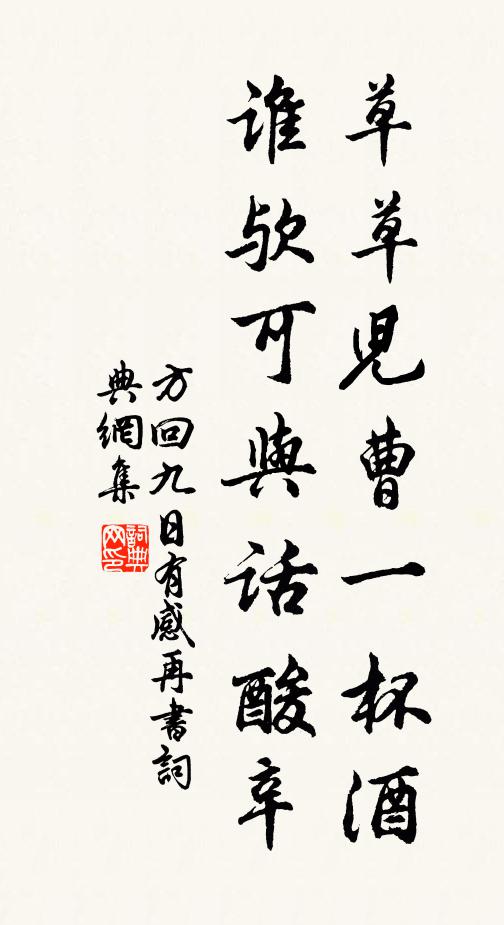 草草児曹一杯酒
谁欤可與话酸辛
方回九日有感再書詞
典網集
詞典网印